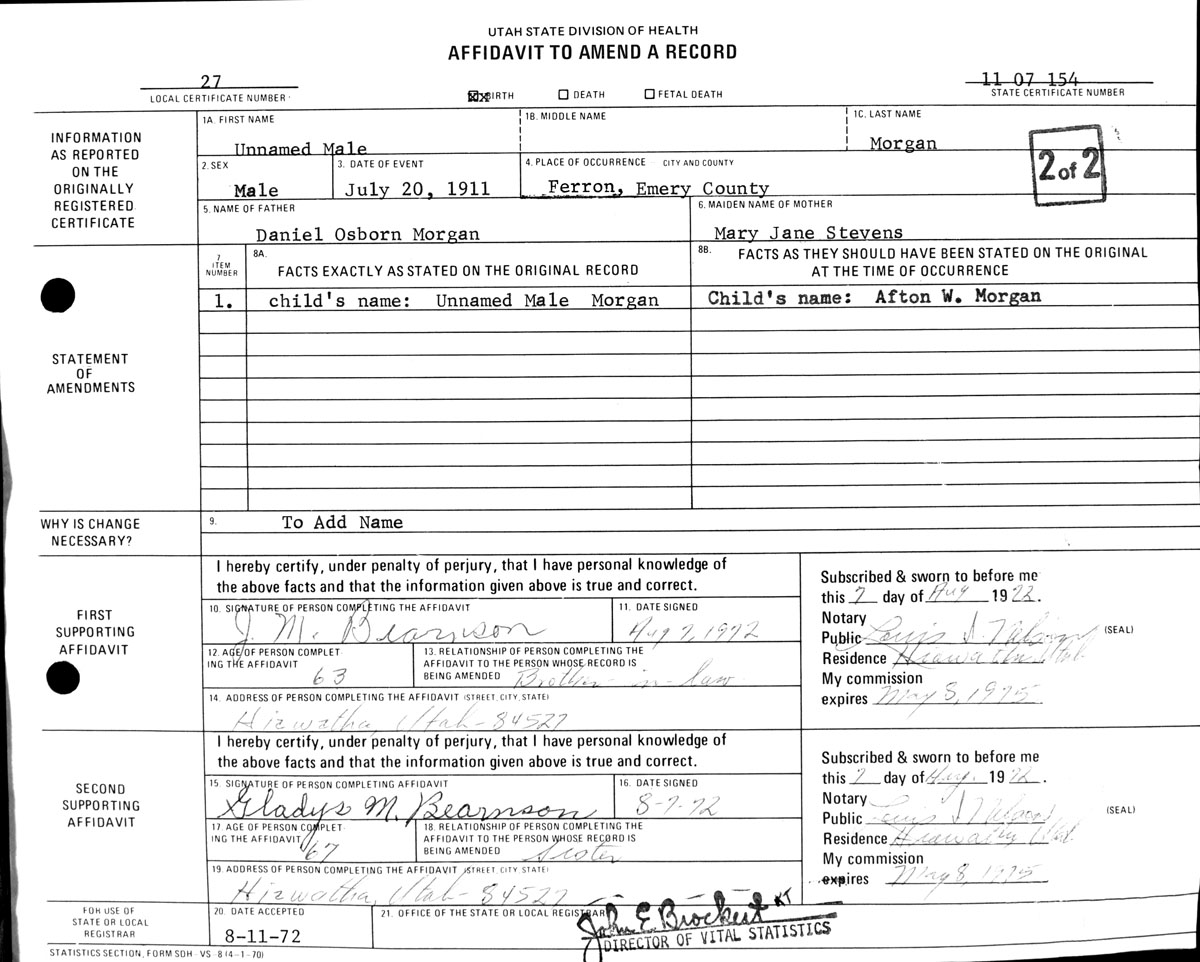 UTAH STATE DIVISION OF HEALTH
AFFIDAVIT TO AMEND A RECORD
27
LOCAL CERTIFICATE NUMBER
11 07 154
STATE CERTIFICATE NUMBER
BIRTH DEATH FETAL DEATH
INFORMATION
AS REPORTED
ON THE
ORIGINALLY
REGISTERED
CERTIFICATE
1A. FIRST NAME 1B. MIDDLE NAME 1C. LAST NAME
Unnamed Male Morgan
2 of 2
2. SEX 3. DATE OF EVENT 4. PLACE OF OCCURRENCE CITY AND COUNTY
Male July 20, 1911 Ferron, Emery County
5. NAME OF FATHER 6. MAIDEN NAME OF MOTHER
Daniel Osborn Morgan Mary Jane Stevens
STATEMENT
OF
AMENDMENTS
7
ITEM
NUMBER
8A.
FACTS EXACTLY AS STATED ON THE ORIGINAL RECORD
8B. FACTS AS THEY SHOULD HAVE BEEN STATED ON THE ORIGINAL
AT THE TIME OF OCCURRENCE
1. child's name: Unnamed Male Morgan Child's name: Afton W. Morgan
WHY IS CHANGE
NECESSARY?
9. To Add Name
FIRST
SUPPORTING
AFFIDAVIT
I hereby certify, under penalty of perjury, that I have personal knowledge of
the above facts and that the information given above is true and correct.
10. SIGNATURE OF PERSON COMPLETING THE AFFIDAVIT 11. DATE SIGNED
J. M. Bearnson Aug 7, 1972
12. AGE OF PERSON COMPLET-
ING THE AFFIDAVIT
63
13. RELATIONSHIP OF PERSON COMPLETING THE
AFFIDAVIT TO THE PERSON WHOSE RECORD IS
BEING AMENDED Brother-in-law
14. ADDRESS OF PERSON COMPLETING THE AFFIDAVIT (STREET, CITY, STATE)
Hiawatha, Utah-84527
Subscribed & sworn to before me
this 7 day of Aug 1972.
Notary
Public Louis
(SEAL)
Residence Hiawatha Utah
My commission
expires May 8, 1975
SECOND
SUPPORTING
AFFIDAVIT
I hereby certify, under penalty of perjury, that I have personal knowledge of
the above facts and that the information given above is true and correct.
15. SIGNATURE OF PERSON COMPLETING AFFIDAVIT 16. DATE SIGNED
Gladys M. Bearnson 8-7-72
17. AGE OF PERSON COMPLET-
ING THE AFFIDAVIT
67
18. RELATIONSHIP OF PERSON COMPLETING THE
AFFIDAVIT TO THE PERSON WHOSE RECORD IS
BEING AMENDED Sister
19. ADDRESS OF PERSON COMPLETING THE AFFIDAVIT (STREET, CITY, STATE)
Hiawatha, Utah-84527
Subscribed & sworn to before me
this 7 day of Aug. 1972.
Notary
Public Louis
(SEAL)
Residence Hiawatha Utd
My commission
expires May 8, 1975
FOR USE OF
STATE OR LOCAL
REGISTRAR
20. DATE ACCEPTED
8-11-72
21. OFFICE OF THE STATE OR LOCAL REGISTRAR
John E. Brockert KT
DIRECTOR OF VITAL STATISTICS
STATISTICS SECTION, FORM SDH - VS - 8 (4-1-70)